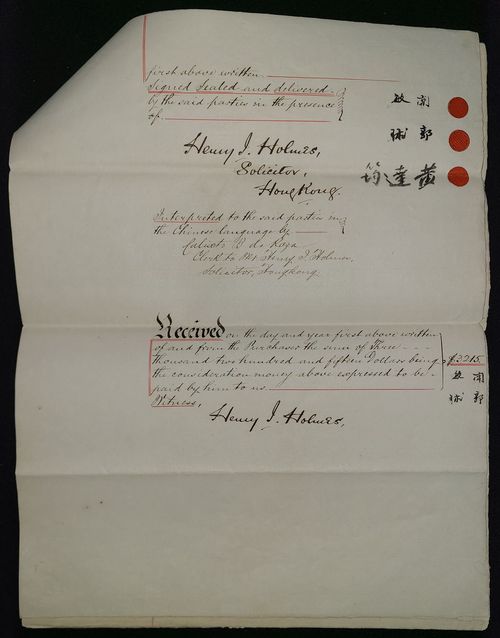 first above written
Signed Sealed and delivered
by the said parties in the presence
of
Henry J. Holmes,
Solicitor,
Hong Kong.
黃達筠
Interpreted to the said parties in
the Chinese language by
Clerk to Mr Henry J. Holmes
Solicitor, Hongkong
Received on the day and year first above written
of and from the Purchaser the sum of Three
thousand two hundred and fifteen Dollars being
the consideration money above expressed to be
paid by him to us
$3215
Witness,
Henry J. Holmes,